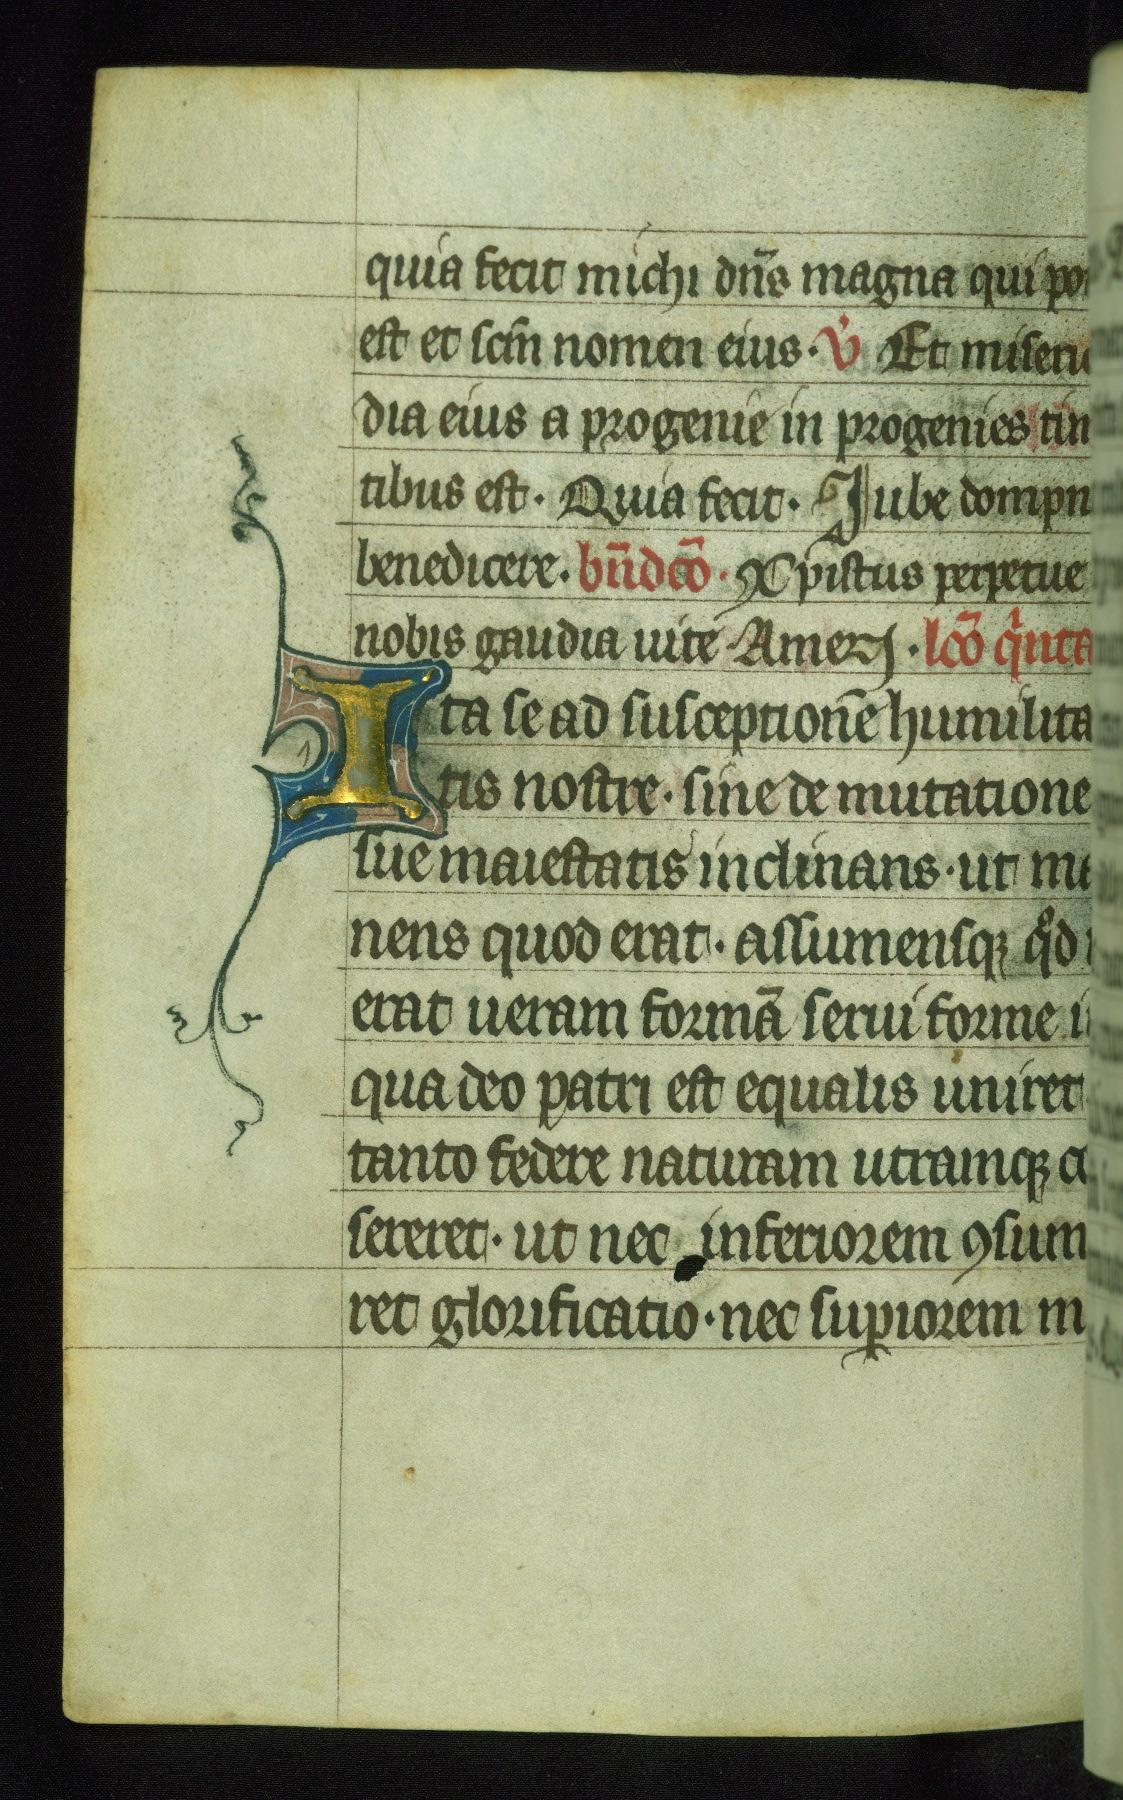 quia fecit michi dn̄s magna qui po
est et sc̄m nomen eius · v̇ Et miseri
dia eius a progenie in progenies tim
tibus est · Quia fecit · Jube dompn
benedicere · bn̄dcō · Xpistus perpetue
nobis gaudia uite · Amen · lcō qͥnta
Ita se ad susceptionē humilita
tis nostre · sine de mutatione
sue maiestatis inclinans · ut ma
nens quod erat · assumensqꝫ qͦd
erat ueram formā serui forme i
qua deo patri est equalis uniret
tanto federe naturam utramqꝫ c
sereret · ut nec inferiorem ꝯsum
ret glorificatio · nec suꝑiorem m